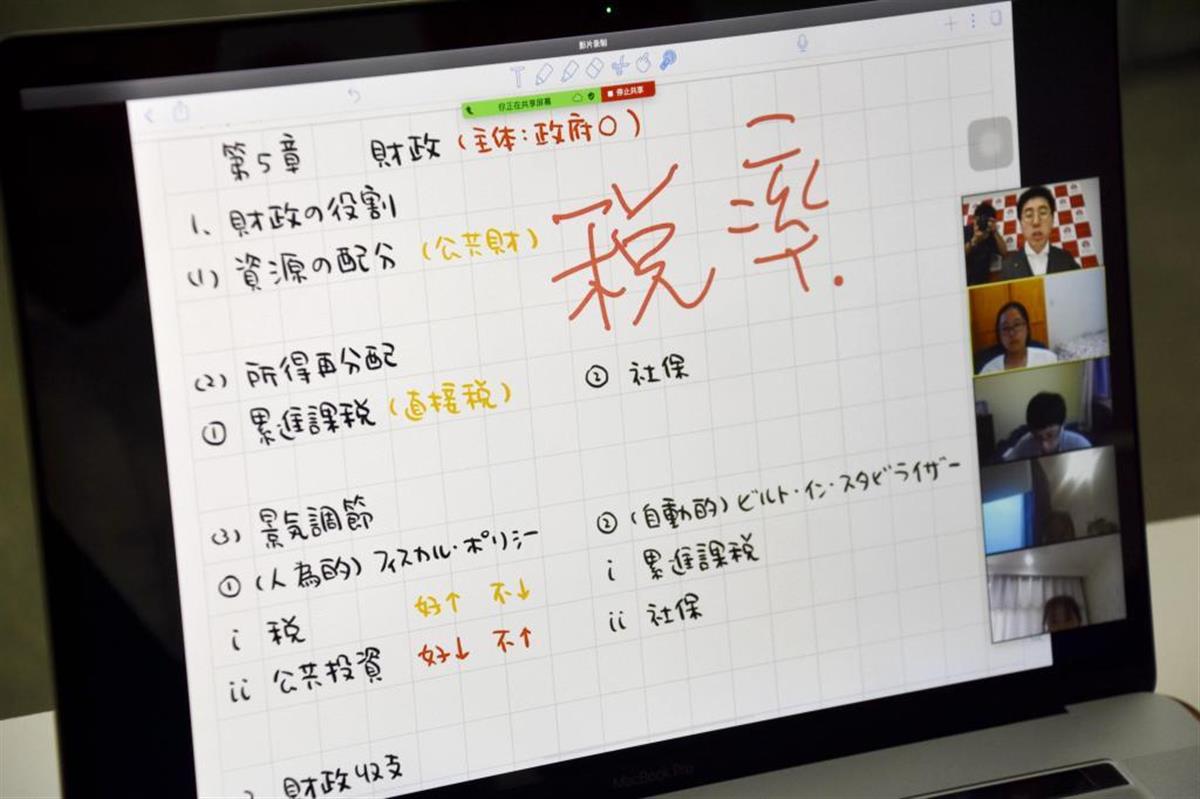 影片录制
你正在共享屏幕 停止共享
第5章 財政(主体:政府○)
1、財政の役割
(1)資源の配分(公共財)
税率.
(2)所得再分配
①累進課税(直接税) ②社保
(3)景気調節
①(人為的)フィスカル・ポリシー ②(自動的)ビルト・イン・スタビライザー
i 税 好↑ 不↓ i 累進課税
ii 公共投資 好↓ 不↑ ii 社保
財政収支
MacBook Pro